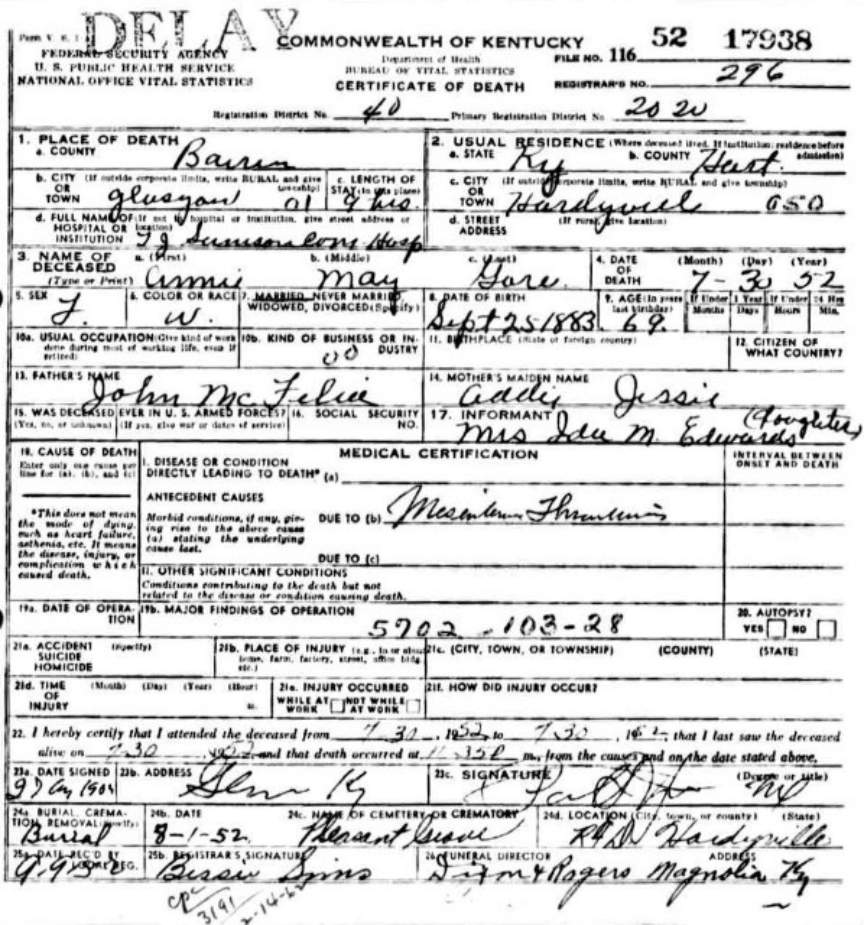 DELAY
Form V. S. 1-A COMMONWEALTH OF KENTUCKY FILE NO. 116 52 17938
FEDERAL SECURITY AGENCY Department of Health
U. S. PUBLIC HEALTH SERVICE BUREAU OF VITAL STATISTICS
NATIONAL OFFICE VITAL STATISTICS CERTIFICATE OF DEATH REGISTRAR'S NO. 296
Registration District No. 40 Primary Registration District No. 2020
1. PLACE OF DEATH 2. USUAL RESIDENCE (Where deceased lived. If institution: residence before admission)
a. COUNTY Barren a. STATE Ky b. COUNTY Hart
b. CITY (If outside corporate limits, write RURAL and give township) OR TOWN Glasgow 01 c. LENGTH OF STAY (in this place) 9 hrs. c. CITY (If outside corporate limits, write RURAL and give township) OR TOWN Hardyville 050
d. FULL NAME OF (If not in hospital or institution, give street address or location) HOSPITAL OR INSTITUTION T J Samson Com Hosp d. STREET ADDRESS (If rural, give location)
3. NAME OF DECEASED (Type or Print) a. (First) Annie b. (Middle) May c. (Last) Gore 4. DATE OF DEATH (Month) (Day) (Year) 7-30 52
5. SEX F. 6. COLOR OR RACE W. 7. MARRIED, NEVER MARRIED, WIDOWED, DIVORCED (Specify) 8. DATE OF BIRTH Sept 25 1883 9. AGE (In years last birthday) 69. If Under 1 Year Months Days If Under 24 Hrs Hours Min.
10a. USUAL OCCUPATION (Give kind of work done during most of working life, even if retired) 10b. KIND OF BUSINESS OR INDUSTRY 00 11. BIRTHPLACE (State or foreign country) 12. CITIZEN OF WHAT COUNTRY?
13. FATHER'S NAME John McFelia 14. MOTHER'S MAIDEN NAME Addie Jessie
15. WAS DECEASED EVER IN U. S. ARMED FORCES? (Yes, no, or unknown) (If yes, give war or dates of service) 16. SOCIAL SECURITY NO. 17. INFORMANT Mrs Ida M. Edwards (daughter)
18. CAUSE OF DEATH MEDICAL CERTIFICATION INTERVAL BETWEEN ONSET AND DEATH
Enter only one cause per line for (a), (b), and (c) I. DISEASE OR CONDITION DIRECTLY LEADING TO DEATH* (a)
ANTECEDENT CAUSES
*This does not mean the mode of dying, such as heart failure, asthenia, etc. It means the disease, injury, or complication which caused death. Morbid conditions, if any, giving rise to the above cause (a) stating the underlying cause last. DUE TO (b)
DUE TO (c)
II. OTHER SIGNIFICANT CONDITIONS
Conditions contributing to the death but not related to the disease or condition causing death.
19a. DATE OF OPERATION 19b. MAJOR FINDINGS OF OPERATION 20. AUTOPSY?
5702 - 103-28 YES NO
21a. ACCIDENT SUICIDE HOMICIDE (Specify) 21b. PLACE OF INJURY (e.g., in or about home, farm, factory, street, office bldg. etc.) 21c. (CITY, TOWN, OR TOWNSHIP) (COUNTY) (STATE)
21d. TIME OF INJURY (Month) (Day) (Year) (Hour) m. 21e. INJURY OCCURRED WHILE AT WORK NOT WHILE AT WORK 21f. HOW DID INJURY OCCUR?
22. I hereby certify that I attended the deceased from 7-30, 1952 to 7-30, 1952, that I last saw the deceased
alive on 7-30, 1952 and that death occurred at 11:35P m., from the causes and on the date stated above.
23a. DATE SIGNED 23b. ADDRESS Ky 23c. SIGNATURE (Degree or title) MD
24a. BURIAL, CREMATION, REMOVAL (Specify) Burial 24b. DATE 8-1-52 24c. NAME OF CEMETERY OR CREMATORY Pleasant Grove 24d. LOCATION (City, town, or county) (State) Hardyville
25a. DATE REC'D BY LOCAL REG. 25b. REGISTRAR'S SIGNATURE Bessie Sims 26. FUNERAL DIRECTOR ADDRESS Dixon & Rogers Magnolia Ky
cpc
3191